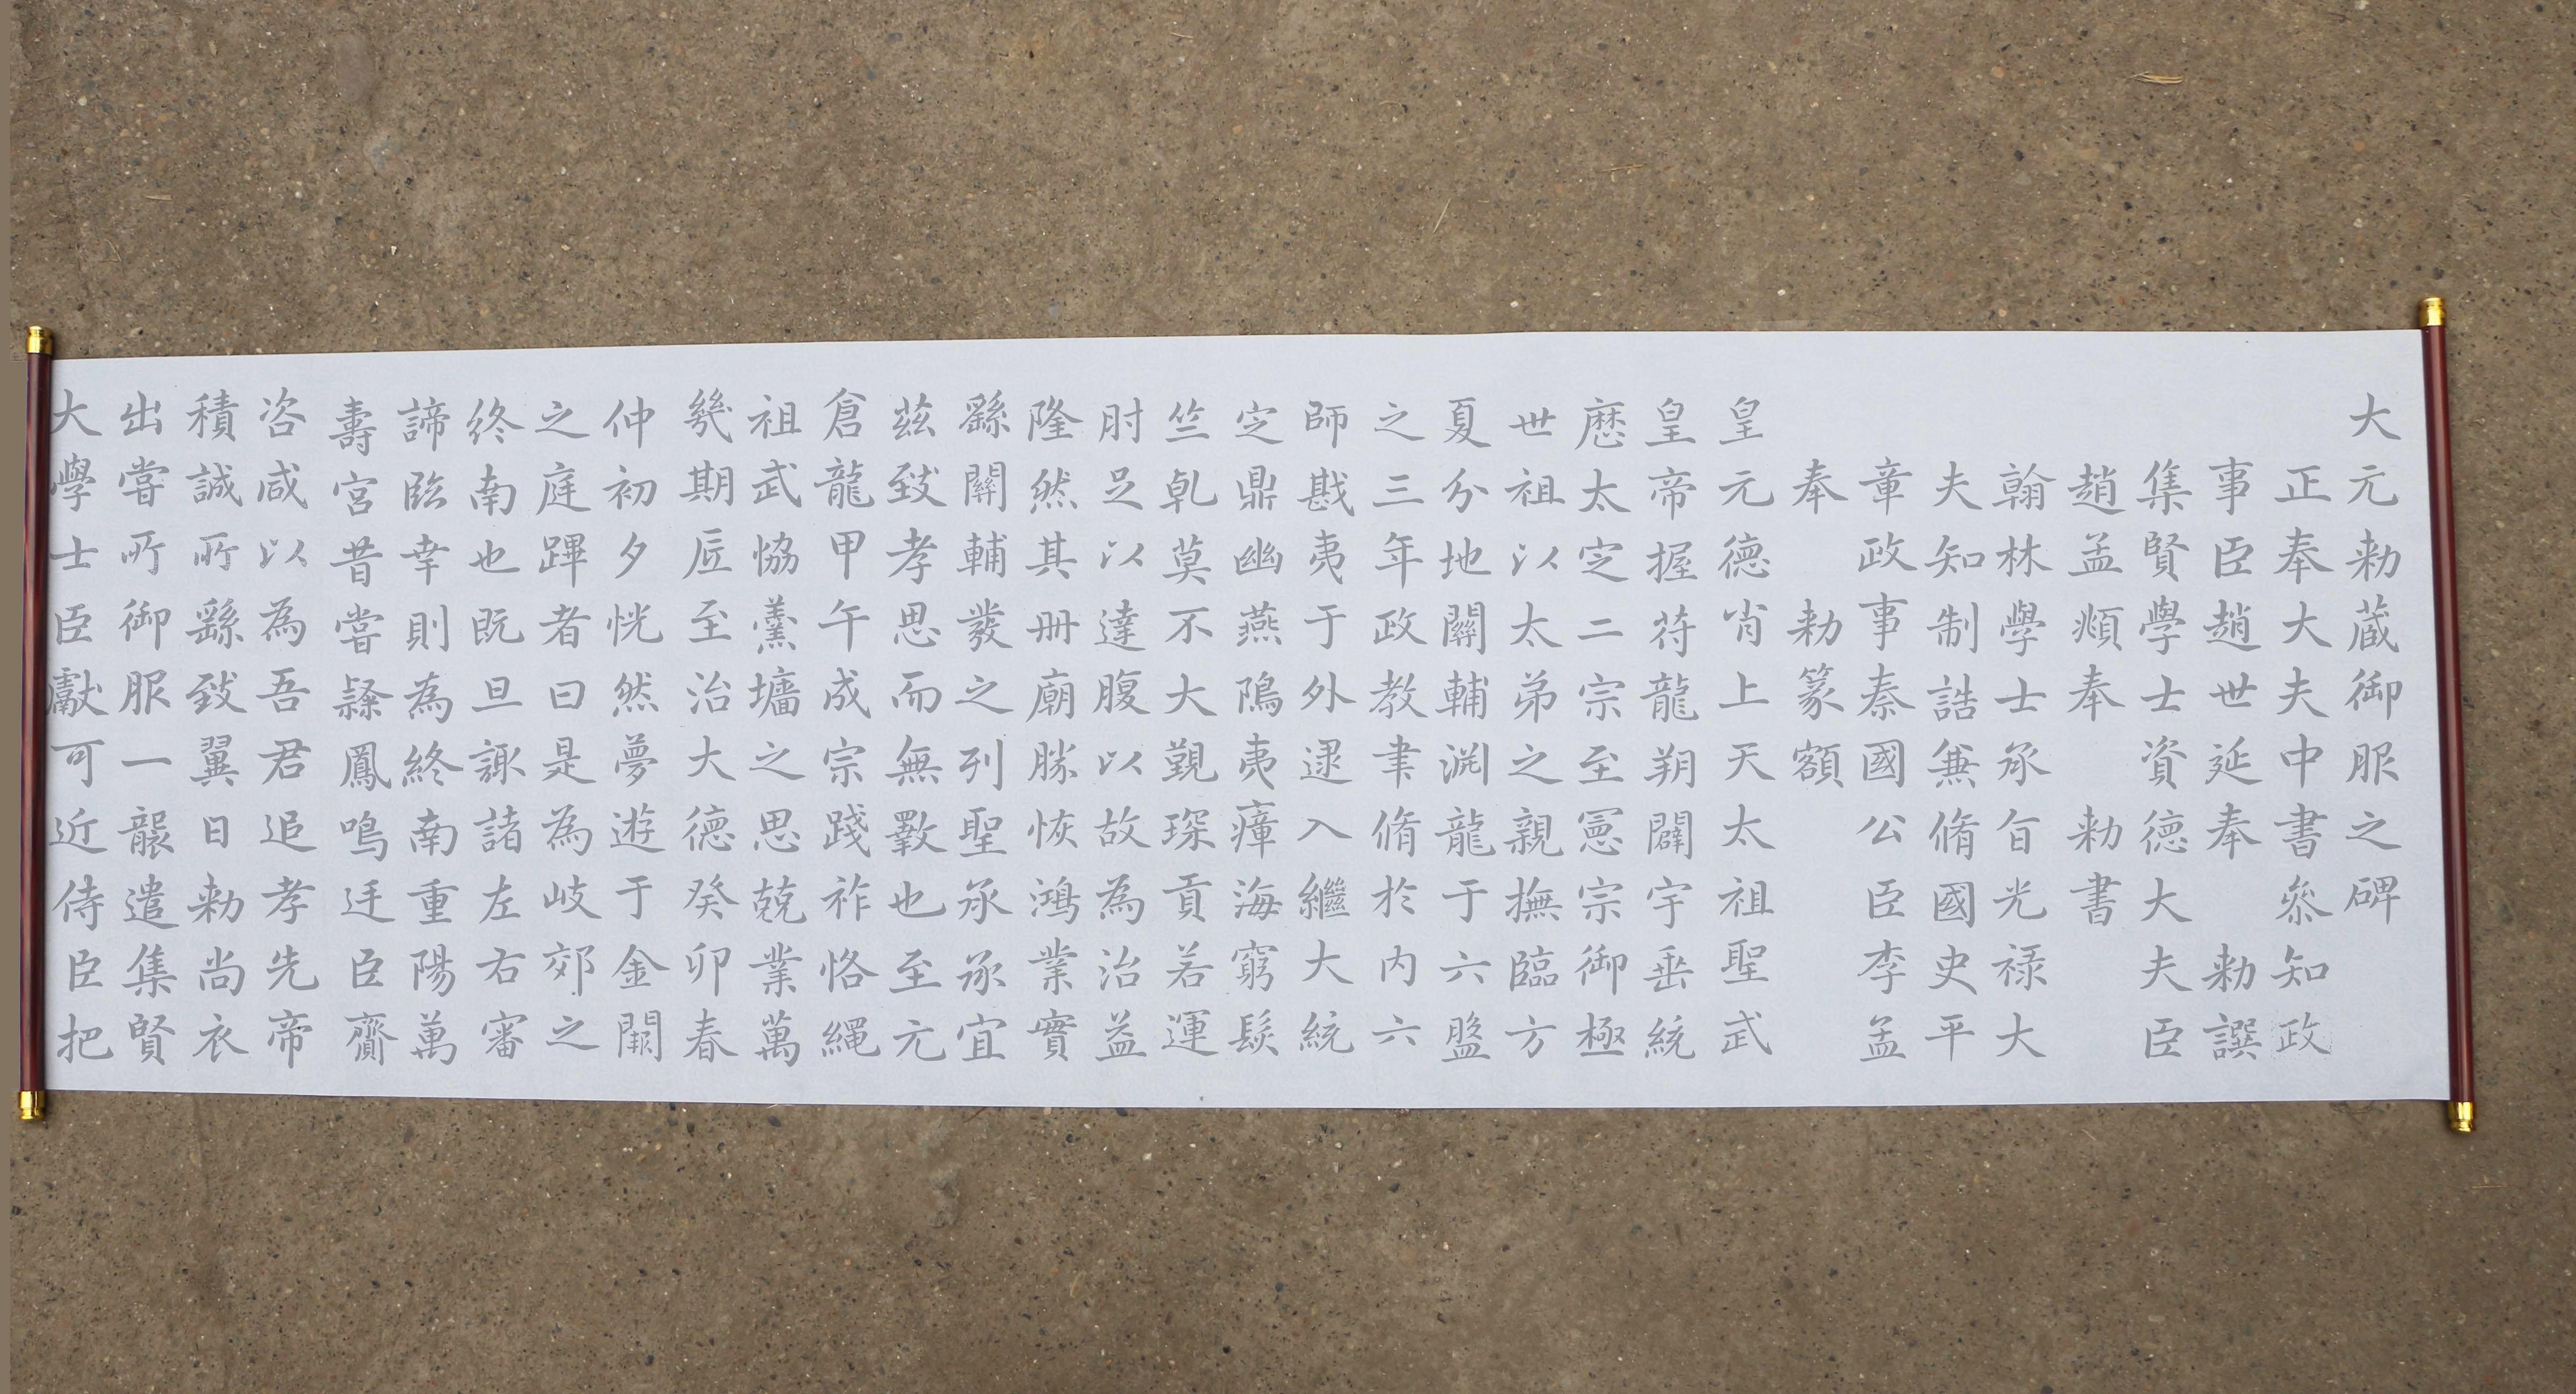 大元勑蔵御服之碑
正奉大夫中書叅知政
事臣趙世延奉勑譔
集賢學士資德大夫臣
趙孟頫奉勑書
翰林學士承旨光祿大
夫知制誥兼脩國史平
章政事秦國公臣李孟
奉勑篆額
皇元德肖上天太祖聖武
皇帝握苻龍朔闢宇垂統
厯太定二宗至憲宗御極
世祖以太弟之親撫臨方
夏分地關輔渊龍于六盤
之三年政教聿脩於內六
師戡夷于外逮入繼大統
定鼎幽燕隝夷瘴海窮髮
竺乹莫不大覲琛貢若運
肘足以達腹以故為治益
隆然其冊廟勝恢鴻業實
繇關輔發之列聖承承宜
茲致孝思而無斁也至元
倉龍甲午成宗踐祚恪繩
祖武恊羹墻之思兢業萬
幾期底至治大德癸卯春
仲初夕恍然夢遊于金闕
之庭蹕者曰是為岐郊之
終南也既旦諏諸左右審
諦臨幸則為終南重陽萬
壽宮昔嘗繇鳳鳴迋臣齎
咨咸以為吾君追孝先帝
積誠所繇致翼日勑尚衣
出嘗所御服一襲遣集賢
大學士臣獻可近侍臣把